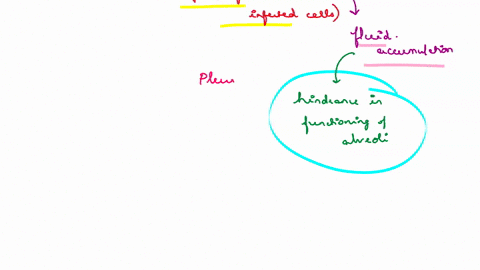 infected cells)
fluid.
accumulation
Pleu
hindrance in
functioning of
alveoli